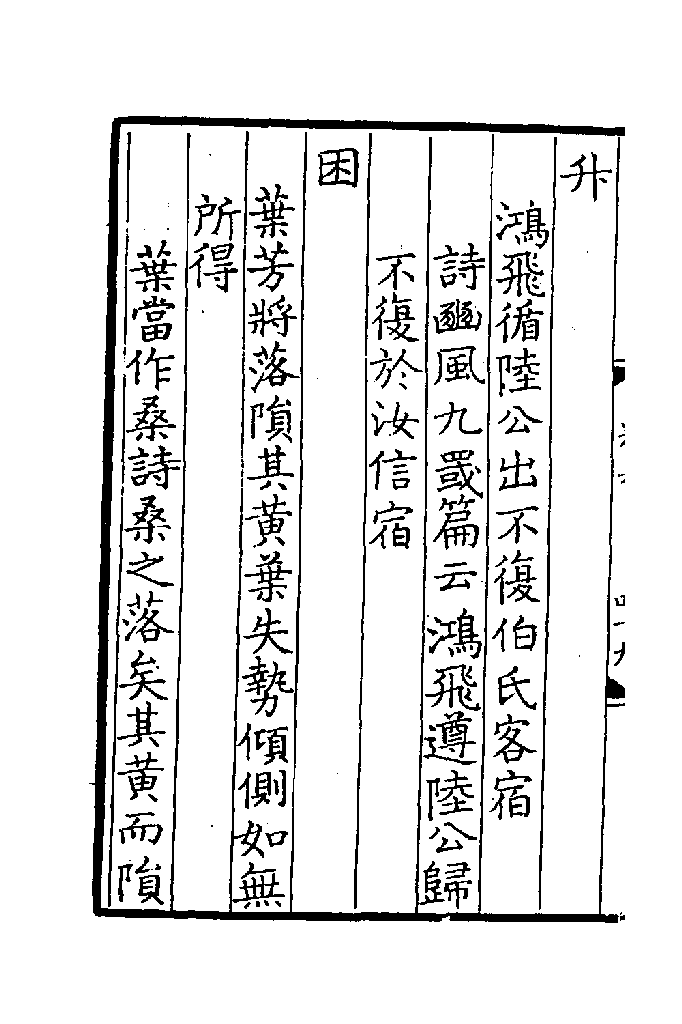 升
鴻飛循陸公出不復伯氏客宿
詩豳風九罭篇云鴻飛遵陸公歸
不復於汝信宿
困
葉芳將落隕其黃葉失勢傾側如無
所得
葉當作桑詩桑之落矣其黃而隕